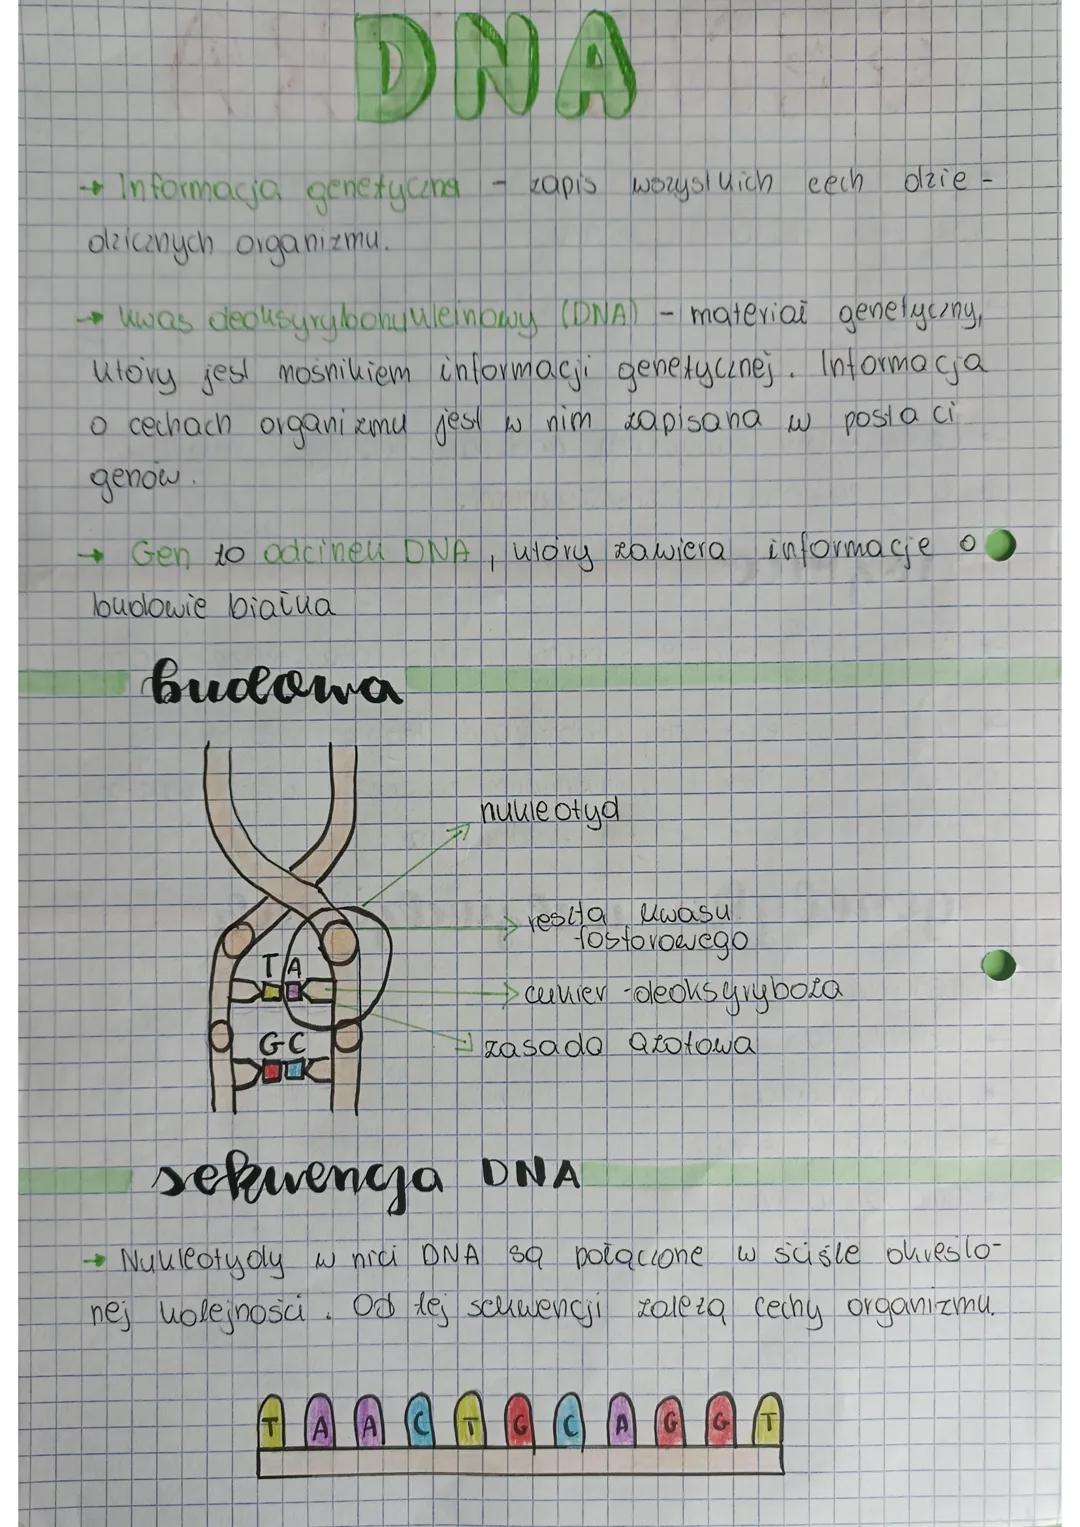 DNA
→ Informacja genetyczna - zapis wszystkich cech dzie-
dzicznych organizmu.
→ kwas deoksyrybonukleinowy (DNA) - materiał genetyczny,
który jest nośnikiem informacji genetycznej. Informacja
o cechach organizmu jest w nim zapisana w postaci
genów.
→ Gen to odcinek DNA, który zawiera informacje o
budowie białka
budowa
nukleotyd
reszta kwasu
fosforowego
T A
cukier - deoksyryboza
G C
zasada azotowa
sekwencja DNA
→ Nukleotydy w nici DNA są połączone w ściśle określo-
nej kolejności. Od tej sekwencji zależą cechy organizmu.
T A A C T G C A G G T